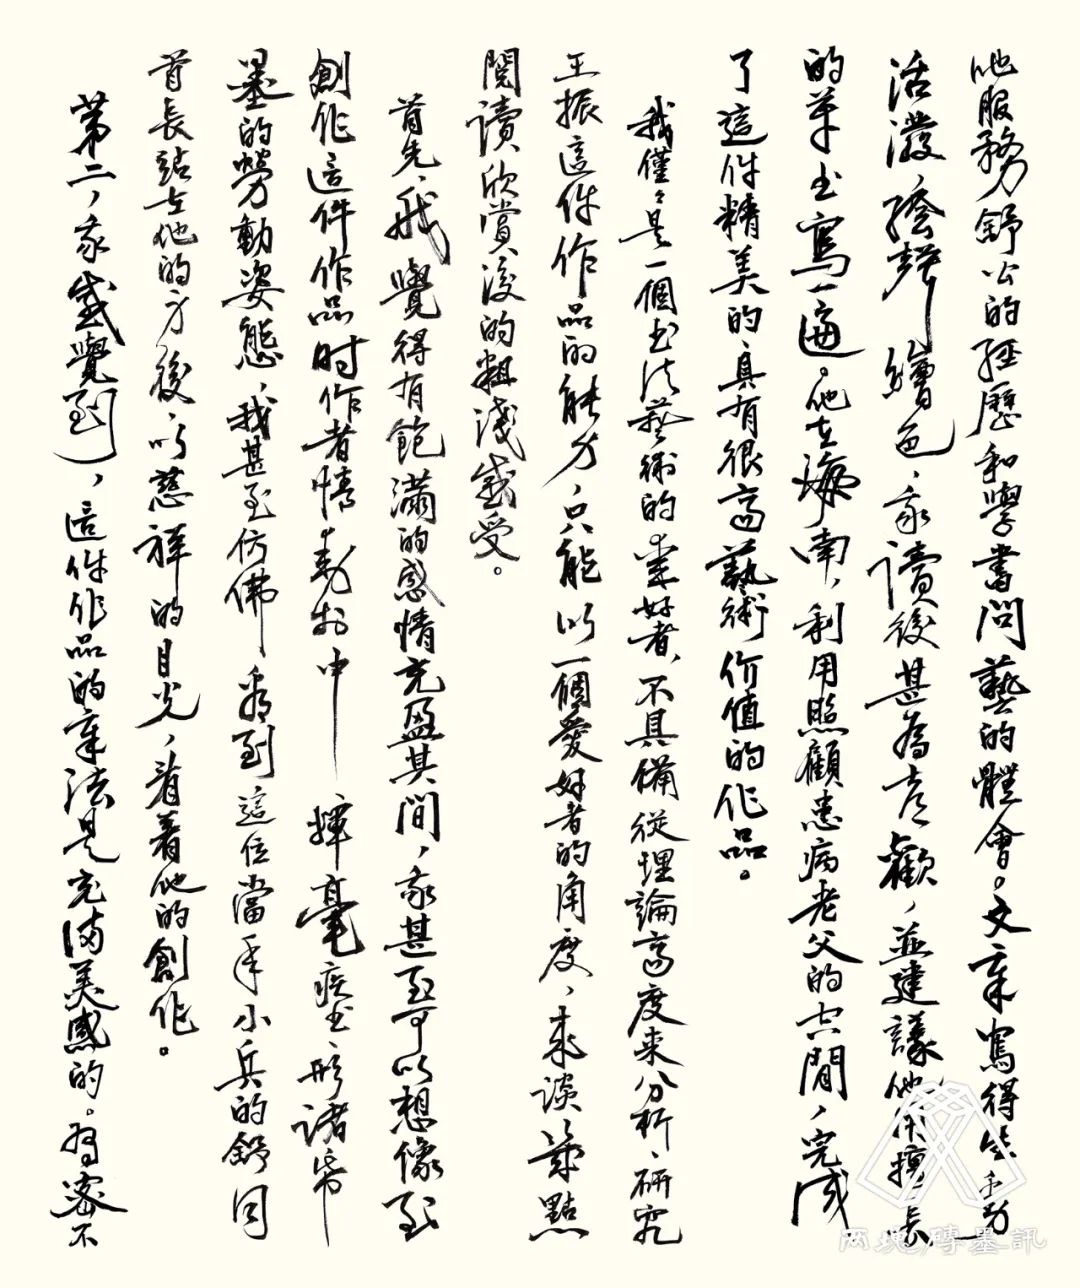 他服務舒公的經歷和學書問藝的體會。文章寫得生動
活潑，繪聲繪色，我讀後甚為喜歡，並建議他用擅長
的草書寫一遍。他在海南，利用照顧患病老父的空閒，完成
了這件精美的、具有很高藝術价值的作品。
我僅僅是一個書法藝術的愛好者，不具備從理論高度來分析、研究
王振這件作品的能力，只能以一個愛好者的角度，來談幾點
閱讀欣賞後的粗淺感受。
首先，我覺得有飽滿的感情充盈其間，我甚至可以想像到
創作這件作品时作者情動於中——揮毫疾書、形諸筆
墨的勞動姿態，我甚至仿佛看到這位當年小兵的舒同
首長站在他的身後，以慈祥的目光，看着他的創作。
第二，我感覺到，這件作品的章法是充滿美感的。為密不
两塊磚墨訊